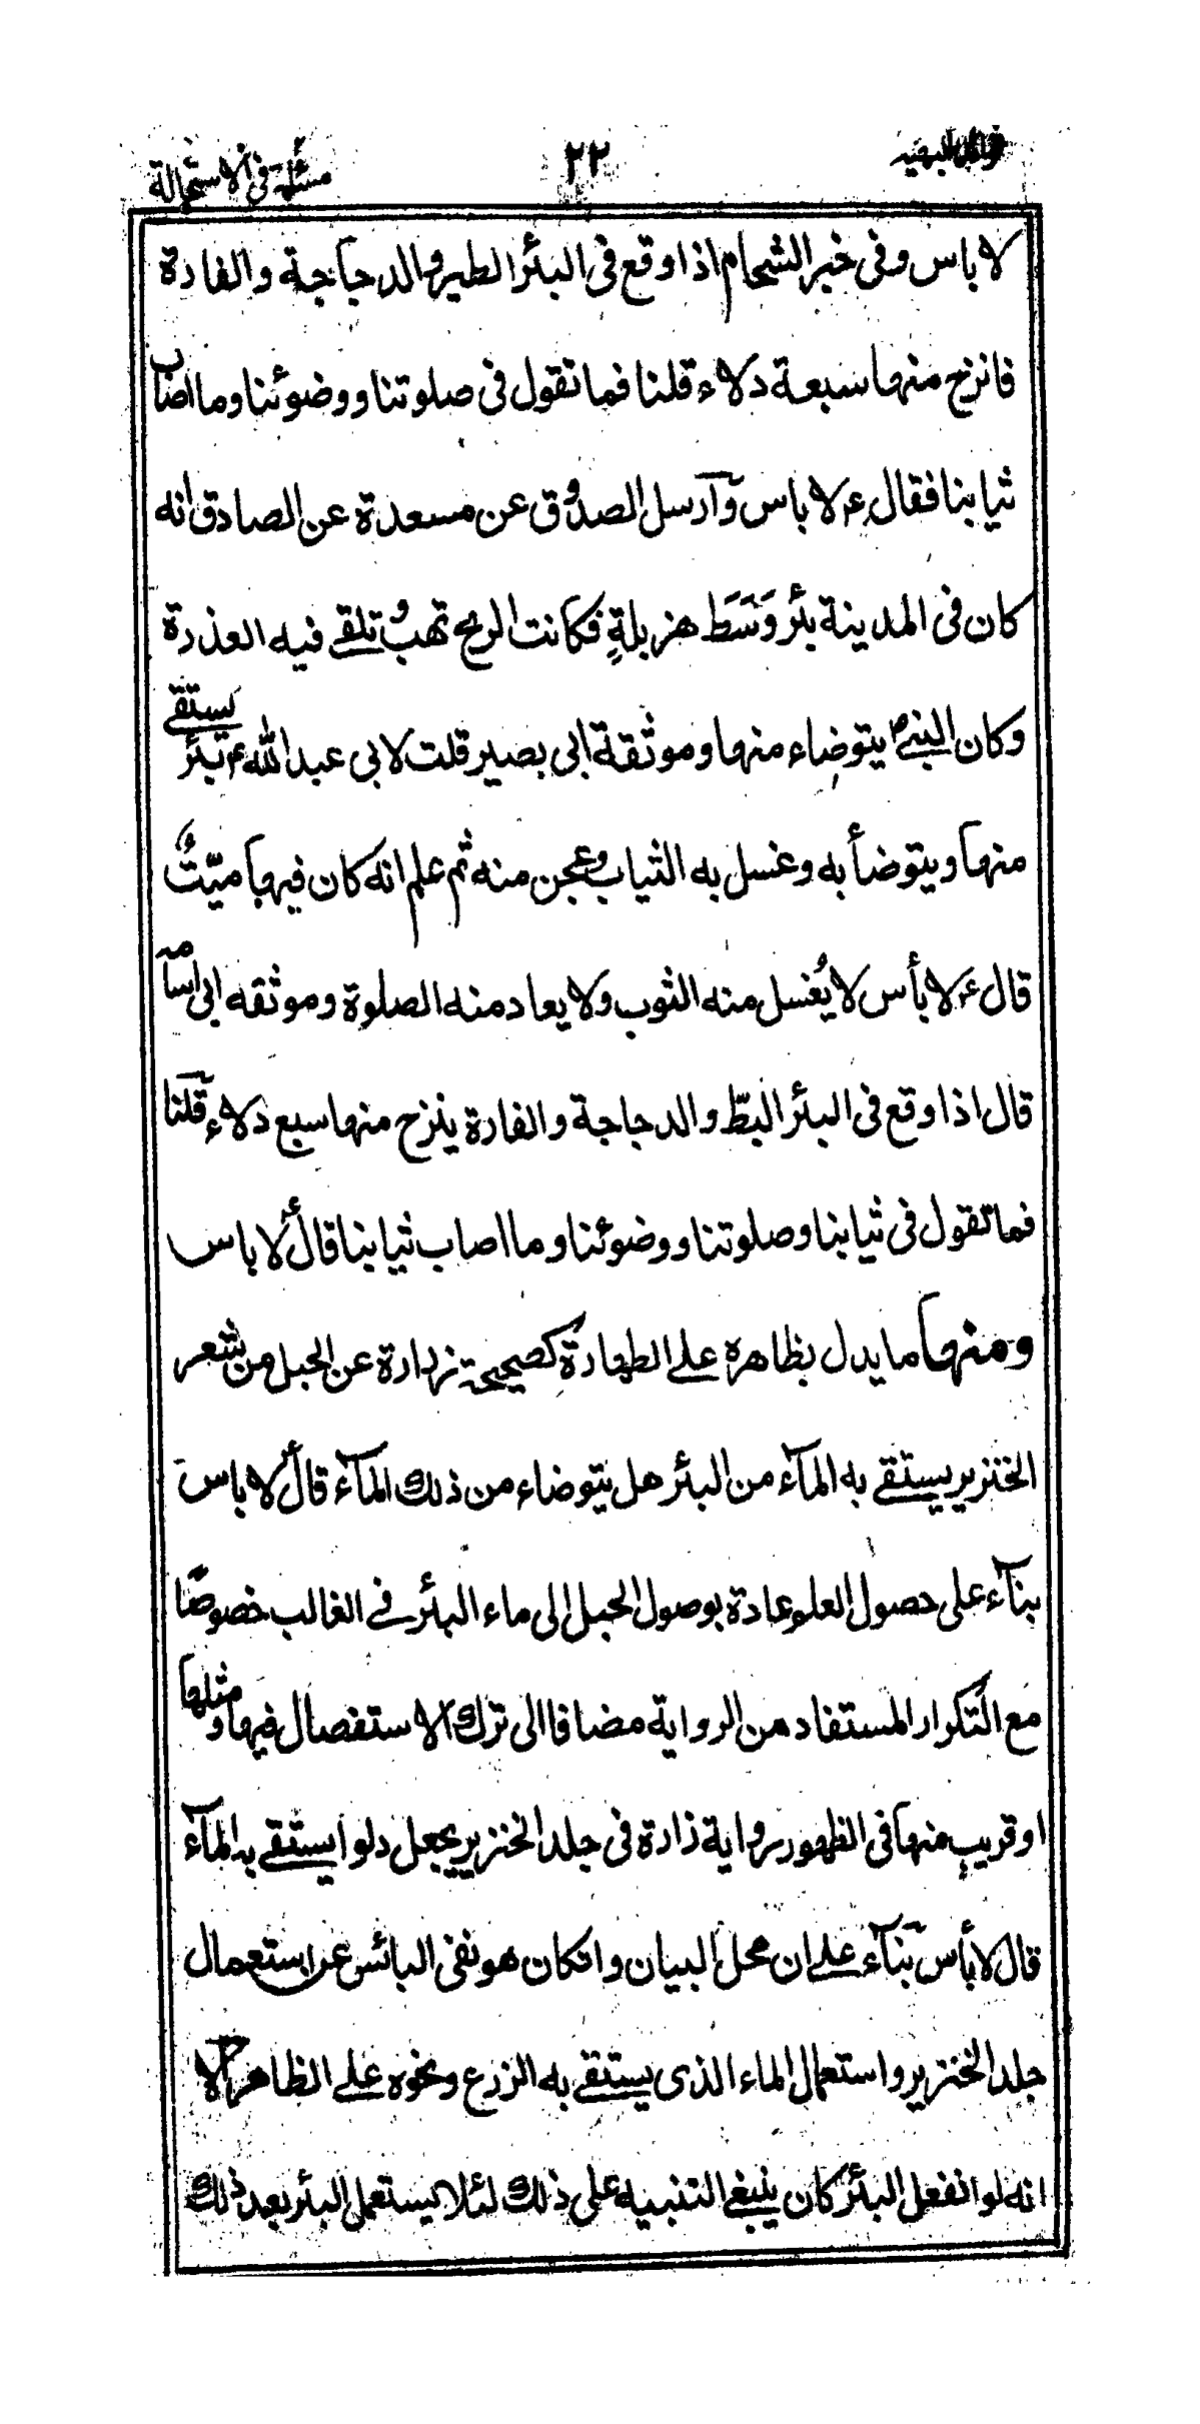 فوائد البهيه ٢٢ مسئلة فى الاستحالة
لا باس وفى خبر الشحام اذا وقع فى البئر الطير والدجاجة والفارة
فانزح منها سبعة دلاء قلنا فما تقول فى صلوتنا ووضوئنا وما اصاب
ثيابنا فقال ع لا باس وآرسل الصدوق عن مسعدة عن الصادق انه
كان فى المدينة بئر وَسَط مزبلةٍ فكانت الريح تهب وتلقى فيه العذرة
وكان النبى ص يتوضاء منها وموثقة ابى بصير قلت لابى عبد الله ع بئر يستقى
منها ويتوضأ به وغسل به الثياب وعجن منه ثم علم انه كان فيها ميّتٌ
قال ع لا بأس لا يُغسل منه الثوب ولا يعاد منه الصلوة وموثقه ابى اسامه
قال اذا وقع فى البئر البطّ والدجاجة والفارة ينزح منها سبع دلاء قلنا
فما تقول فى ثيابنا وصلوتنا ووضوئنا وما اصاب ثيابنا قال ع لا باس
ومنها ما يدل بظاهره على الطهارة كصحيحة زرارة عن الحبل من شعر
الخنزير يستقى به المآء من البئر هل يتوضاء من ذلك المآء قال ع لا باس
بنآء على حصول العلم عادة بوصول الحبل الى ماء البئر فى الغالب خصوصًا
مع التكرار المستفاد من الرواية مضافا الى ترك الاستفصال فيها ومثلها
او قريب منها فى الظهور رواية زارة فى جلد الخنزير يجعل دلوا يستقى به المآء
قال لا بأس بنآء على ان محل البيان وانكان هو نفى البائس عن استعمال
جلد الخنزير واستعمال الماء الذى يستقى به الزرع ونحوه على الظاهر الا
انه لو انفعل البئر كان ينبغى التنبيه على ذلك لئلا يستعمل البئر بعد ذلك